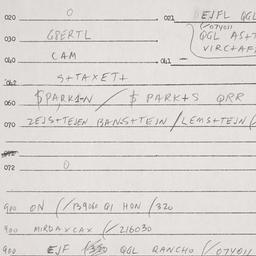 020 0 021 EJFL QGL
(/07401)
030 GPERTL QGL AS+T
VIRC+AF
040 CAM 041 -
042 S+TAXET+
060 $PARK1-N / $ PARK+S QRR
070 ZEJS+TEJEN BANS+TEJN / LEMS+TEJN (
072 0
900 ON (/B9060 Q1 HON /320
900 MIRDAXCAX (/216030
900 EJF QGL RANCHO (/07401